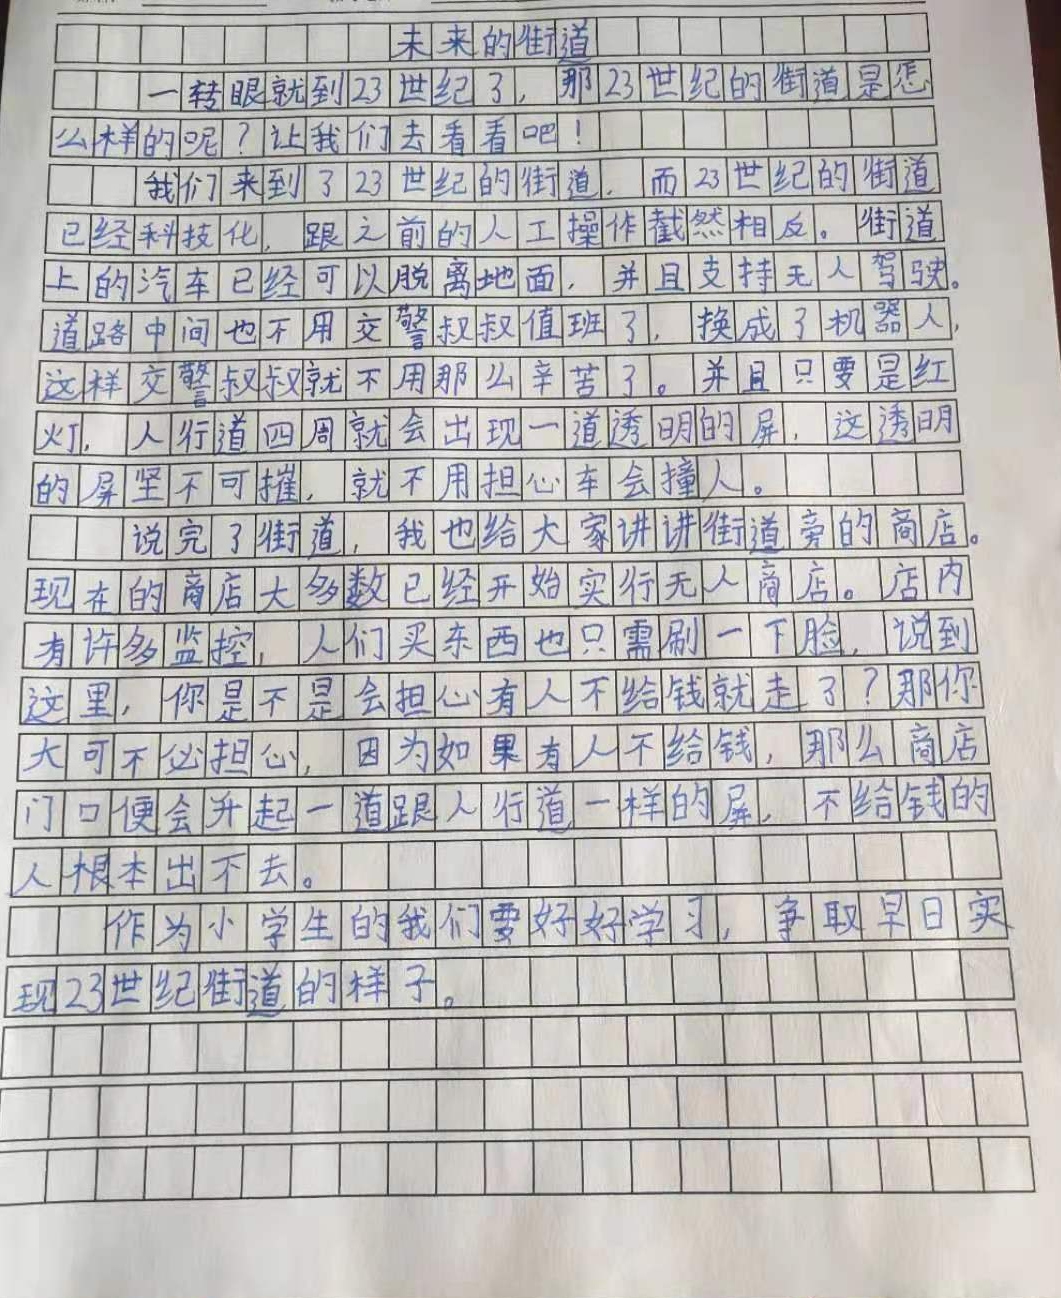 未来的街道
一转眼就到23世纪了，那23世纪的街道是怎
么样的呢？让我们去看看吧！
我们来到了23世纪的街道，而23世纪的街道
已经科技化，跟之前的人工操作截然相反。街道
上的汽车已经可以脱离地面，并且支持无人驾驶。
道路中间也不用交警叔叔值班了，换成了机器人，
这样交警叔叔就不用那么辛苦了。并且只要是红
灯，人行道四周就会出现一道透明的屏，这透明
的屏坚不可摧，就不用担心车会撞人。
说完了街道，我也给大家讲讲街道旁的商店。
现在的商店大多数已经开始实行无人商店。店内
有许多监控，人们买东西也只需刷一下脸，说到
这里，你是不是会担心有人不给钱就走了？那你
大可不必担心，因为如果有人不给钱，那么商店
门口便会升起一道跟人行道一样的屏，不给钱的
人根本出不去。
作为小学生的我们要好好学习，争取早日实
现23世纪街道的样子。